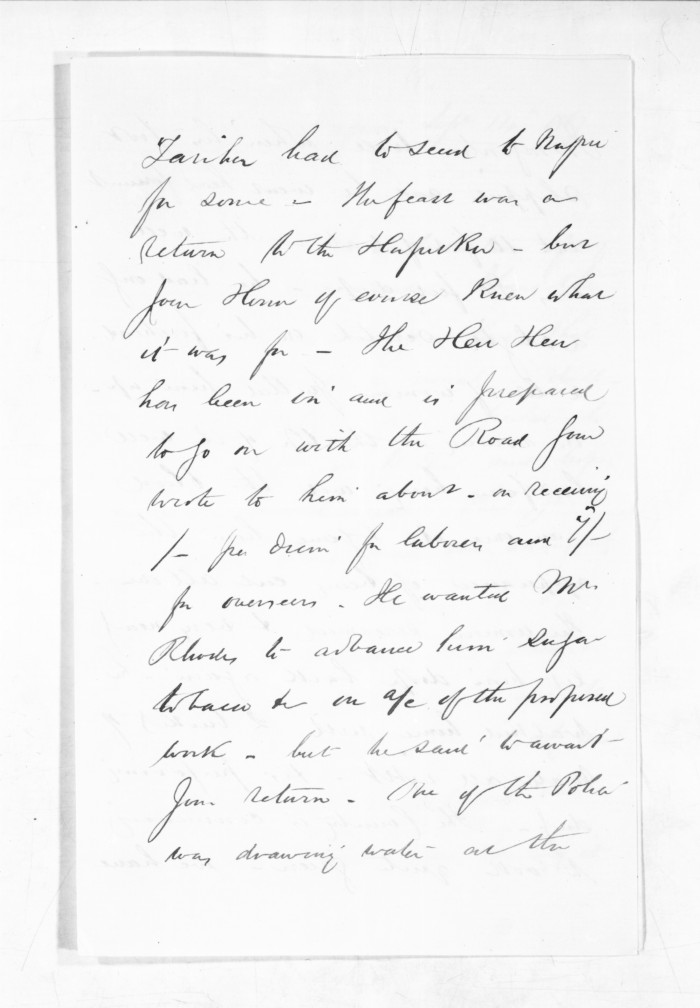 Tariha had to send to Napier
for some - the feast was a
return to the Hapuku - but
your Honor of course knew what
it was for - The Heu Heu
has been in and is prepared
to go on with the Road you
wrote to him about - on receiving
/- per diem for laborers and 7/-
for overseers - He wanted Mr
Rhodes to advance him sugar
tobacco &c on a/c of the proposed
work - but he said to await
your return - One of the Police
was drawing water at the